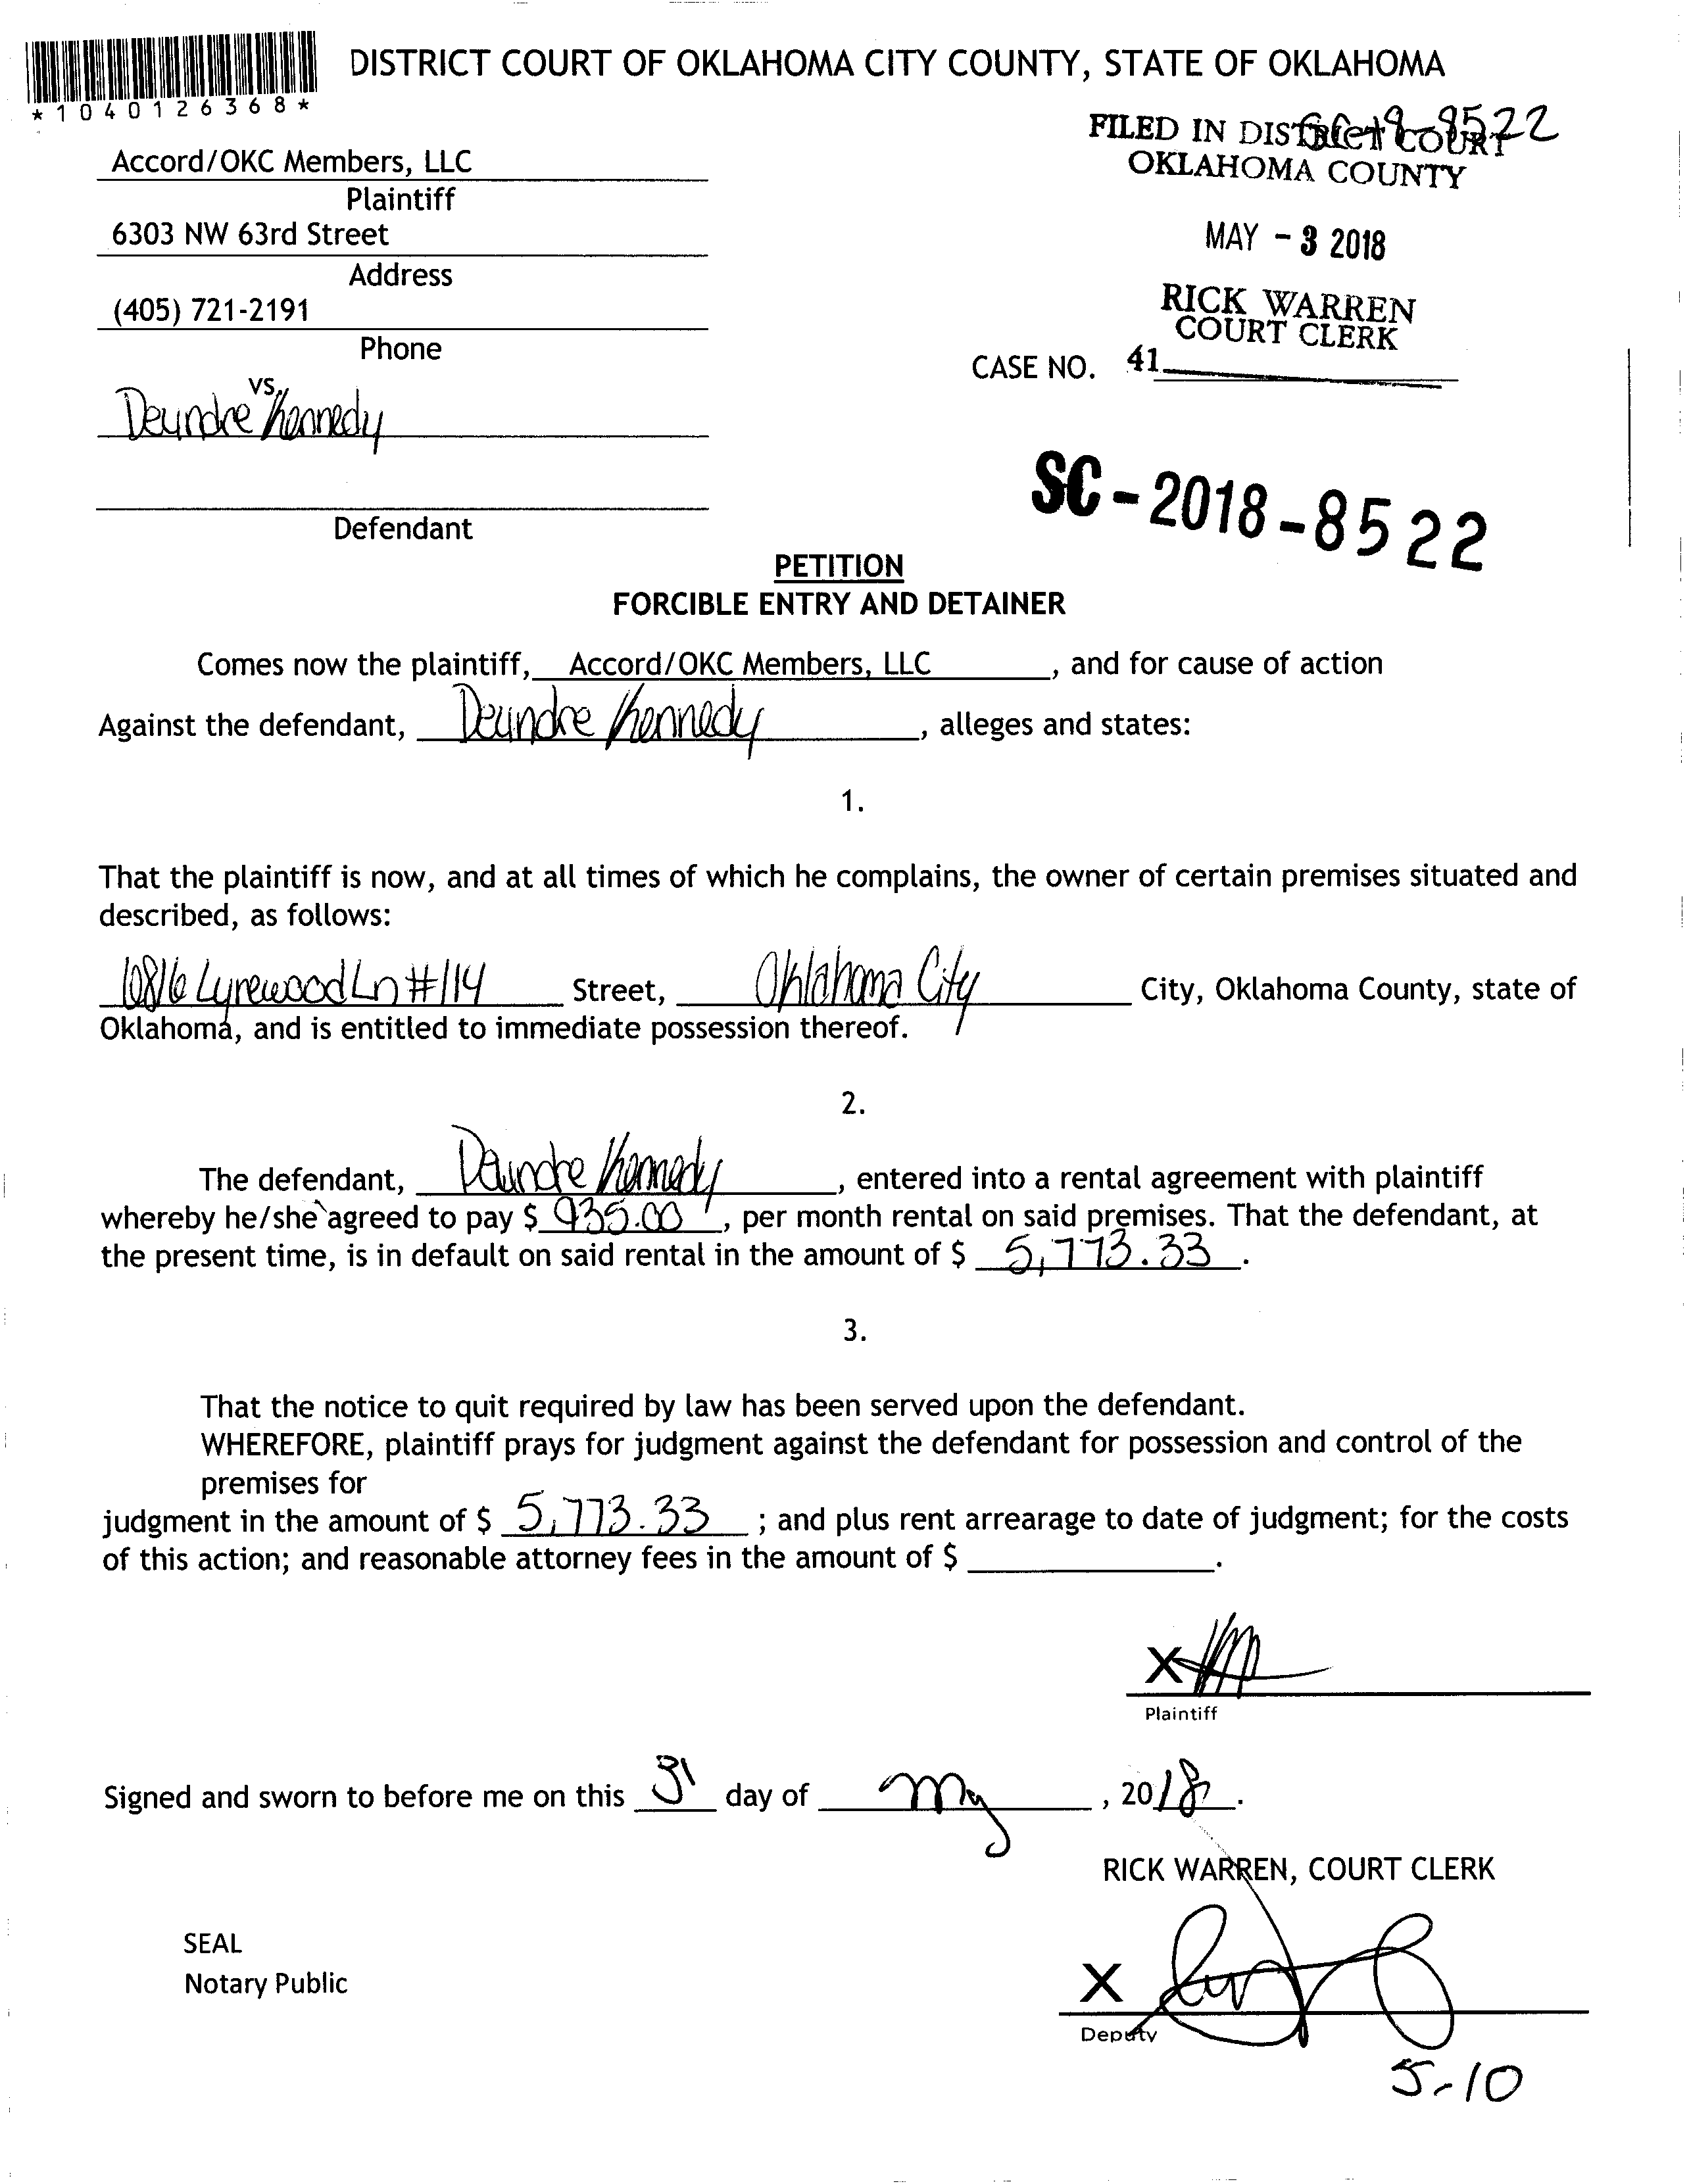 *1040126368*
DISTRICT COURT OF OKLAHOMA CITY COUNTY, STATE OF OKLAHOMA
FILED IN DISTRICT COURT
OKLAHOMA COUNTY
Accord/OKC Members, LLC
Plaintiff
6303 NW 63rd Street
MAY - 3 2018
Address
(405) 721-2191
RICK WARREN
COURT CLERK
Phone
CASE NO. 41
vs.
Deundre Kennedy
SC-2018-8522
Defendant
PETITION
FORCIBLE ENTRY AND DETAINER
Comes now the plaintiff, Accord/OKC Members, LLC, and for cause of action
Against the defendant, Deundre Kennedy, alleges and states:
1.
That the plaintiff is now, and at all times of which he complains, the owner of certain premises situated and
described, as follows:
6816 Lyrewood Ln #114 Street, Oklahoma City City, Oklahoma County, state of
Oklahoma, and is entitled to immediate possession thereof.
2.
The defendant, Deundre Kennedy, entered into a rental agreement with plaintiff
whereby he/she agreed to pay $ 935.00, per month rental on said premises. That the defendant, at
the present time, is in default on said rental in the amount of $ 5,773.33.
3.
That the notice to quit required by law has been served upon the defendant.
WHEREFORE, plaintiff prays for judgment against the defendant for possession and control of the
premises for
judgment in the amount of $ 5,773.33 ; and plus rent arrearage to date of judgment; for the costs
of this action; and reasonable attorney fees in the amount of $ .
X
Plaintiff
Signed and sworn to before me on this day of May, 2018.
RICK WARREN, COURT CLERK
SEAL
Notary Public
X
Deputy
5-10